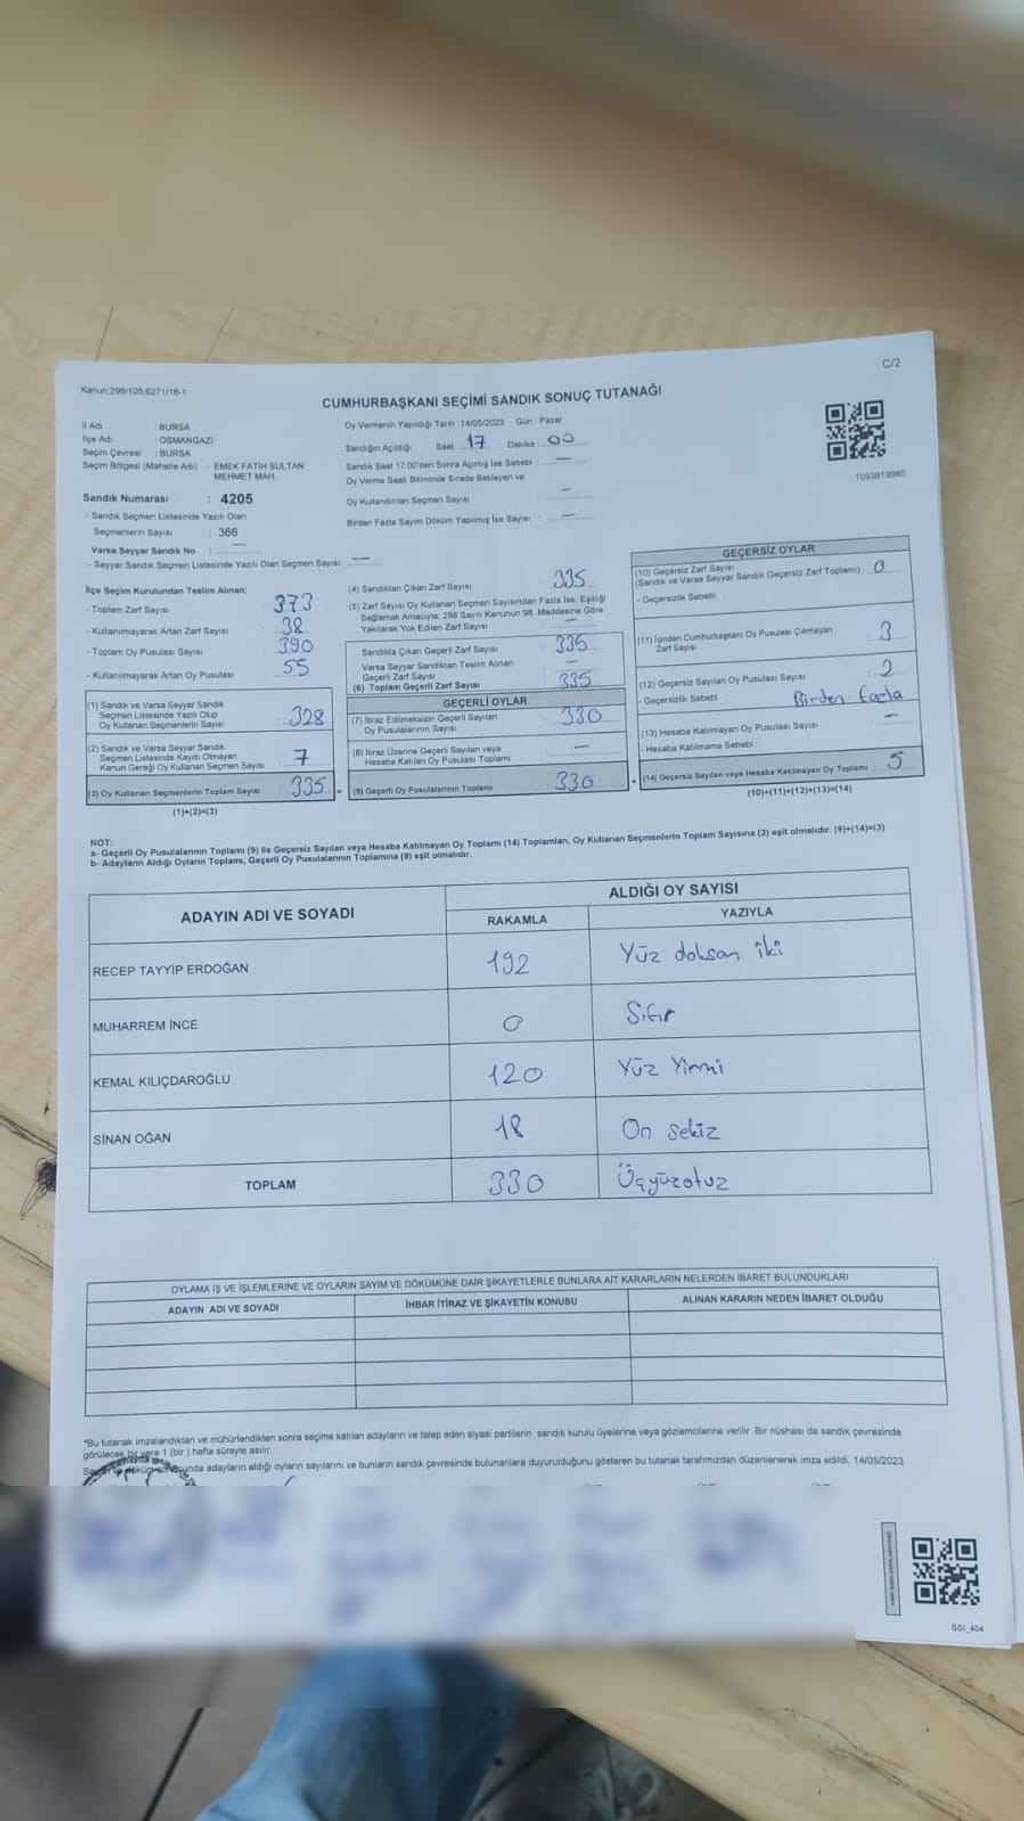 C/2
Kanun:298/105,6271/16-1
CUMHURBAŞKANI SEÇİMİ SANDIK SONUÇ TUTANAĞI
İl Adı : BURSA
İlçe Adı : OSMANGAZİ
Seçim Çevresi : BURSA
Seçim Bölgesi (Mahalle Adı) : EMEK FATİH SULTAN
MEHMET MAH.
Sandık Numarası : 4205
- Sandık Seçmen Listesinde Yazılı Olan
Seçmenlerin Sayısı : 366
Varsa Seyyar Sandık No :
- Seyyar Sandık Seçmen Listesinde Yazılı Olan Seçmen Sayısı
Oy Vermenin Yapıldığı Tarih :14/05/2023 Gün : Pazar
Sandığın Açıldığı Saat 17 Dakika 00
Sandık Saat 17:00'den Sonra Açılmış İse Sebebi :
Oy Verme Saati Bitiminde Sırada Bekleyen ve
Oy Kullandırılan Seçmen Sayısı
Birden Fazla Sayım Döküm Yapılmış İse Sayısı
1093819980
İlçe Seçim Kurulundan Teslim Alınan;
- Toplam Zarf Sayısı 373
- Kullanılmayarak Artan Zarf Sayısı 38
- Toplam Oy Pusulası Sayısı 390
- Kullanılmayarak Artan Oy Pusulası 55
(1) Sandık ve Varsa Seyyar Sandık
Seçmen Listesinde Yazılı Olup
Oy Kullanan Seçmenlerin Sayısı 328
(2) Sandık ve Varsa Seyyar Sandık
Seçmen Listesinde Kaydı Olmayan
Kanun Gereği Oy Kullanan Seçmen Sayısı 7
(3) Oy Kullanan Seçmenlerin Toplam Sayısı 335
(1)+(2)=(3)
(4) Sandıktan Çıkan Zarf Sayısı 335
(5) Zarf Sayısı Oy Kullanan Seçmen Sayısından Fazla İse, Eşitliği
Sağlamak Amacıyla, 298 Sayılı Kanunun 98. Maddesine Göre
Yakılarak Yok Edilen Zarf Sayısı
Sandıkta Çıkan Geçerli Zarf Sayısı 335
Varsa Seyyar Sandıktan Teslim Alınan
Geçerli Zarf Sayısı
(6) Toplam Geçerli Zarf Sayısı 335
GEÇERLİ OYLAR
(7) İtiraz Edilmeksizin Geçerli Sayılan
Oy Pusulalarının Sayısı 330
(8) İtiraz Üzerine Geçerli Sayılan veya
Hesaba Katılan Oy Pusulası Toplamı
(9) Geçerli Oy Pusulalarının Toplamı 330
GEÇERSİZ OYLAR
(10) Geçersiz Zarf Sayısı
(Sandık ve Varsa Seyyar Sandık Geçersiz Zarf Toplamı) 0
- Geçersizlik Sebebi
(11) İçinden Cumhurbaşkanı Oy Pusulası Çıkmayan
Zarf Sayısı 3
(12) Geçersiz Sayılan Oy Pusulası Sayısı 2
- Geçersizlik Sebebi Birden fazla
(13) Hesaba Katılmayan Oy Pusulası Sayısı
- Hesaba Katılmama Sebebi
(14) Geçersiz Sayılan veya Hesaba Katılmayan Oy Toplamı 5
(10)+(11)+(12)+(13)=(14)
NOT:
a- Geçerli Oy Pusulalarının Toplamı (9) ile Geçersiz Sayılan veya Hesaba Katılmayan Oy Toplamı (14) Toplamları, Oy Kullanan Seçmenlerin Toplam Sayısına (3) eşit olmalıdır. (9)+(14)=(3)
b- Adayların Aldığı Oyların Toplamı, Geçerli Oy Pusulalarının Toplamına (9) eşit olmalıdır.
ADAYIN ADI VE SOYADI
ALDIĞI OY SAYISI
RAKAMLA YAZIYLA
RECEP TAYYİP ERDOĞAN 192 Yüz doksan iki
MUHARREM İNCE 0 Sıfır
KEMAL KILIÇDAROĞLU 120 Yüz Yirmi
SİNAN OĞAN 18 On Sekiz
TOPLAM 330 Üçyüzotuz
OYLAMA İŞ VE İŞLEMLERİNE VE OYLARIN SAYIM VE DÖKÜMÜNE DAİR ŞİKAYETLERLE BUNLARA AİT KARARLARIN NELERDEN İBARET BULUNDUKLARI
ADAYIN ADI VE SOYADI İHBAR İTİRAZ VE ŞİKAYETİN KONUSU ALINAN KARARIN NEDEN İBARET OLDUĞU
*Bu tutanak imzalandıktan ve mühürlendikten sonra seçime katılan adayların ve talep eden siyasi partilerin, sandık kurulu üyelerine veya gözlemcilerine verilir. Bir nüshası da sandık çevresinde
görülecek bir yere 1 (bir) hafta süreyle asılır.
adayların aldığı oyların sayılarını ve bunların sandık çevresinde bulunanlara duyurulduğunu gösteren bu tutanak tarafımızdan düzenlenerek imza edildi. 14/05/2023
SGI_404